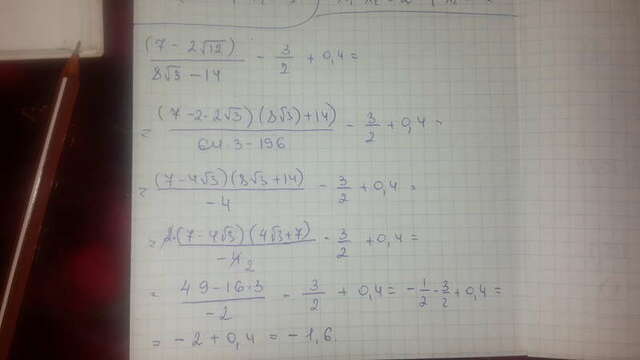 (7 - 2√12) / (8√3 - 14) - 3/2 + 0,4 =
= (7 - 2·2√3)(8√3) + 14) / (64·3 - 196) - 3/2 + 0,4 =
= (7 - 4√3)(8√3 + 14) / (-4) - 3/2 + 0,4 =
= 2·(7 - 4√3)(4√3 + 7) / (-4 2) - 3/2 + 0,4 =
= (49 - 16·3) / (-2) - 3/2 + 0,4 = -1/2 - 3/2 + 0,4 =
= -2 + 0,4 = -1,6.